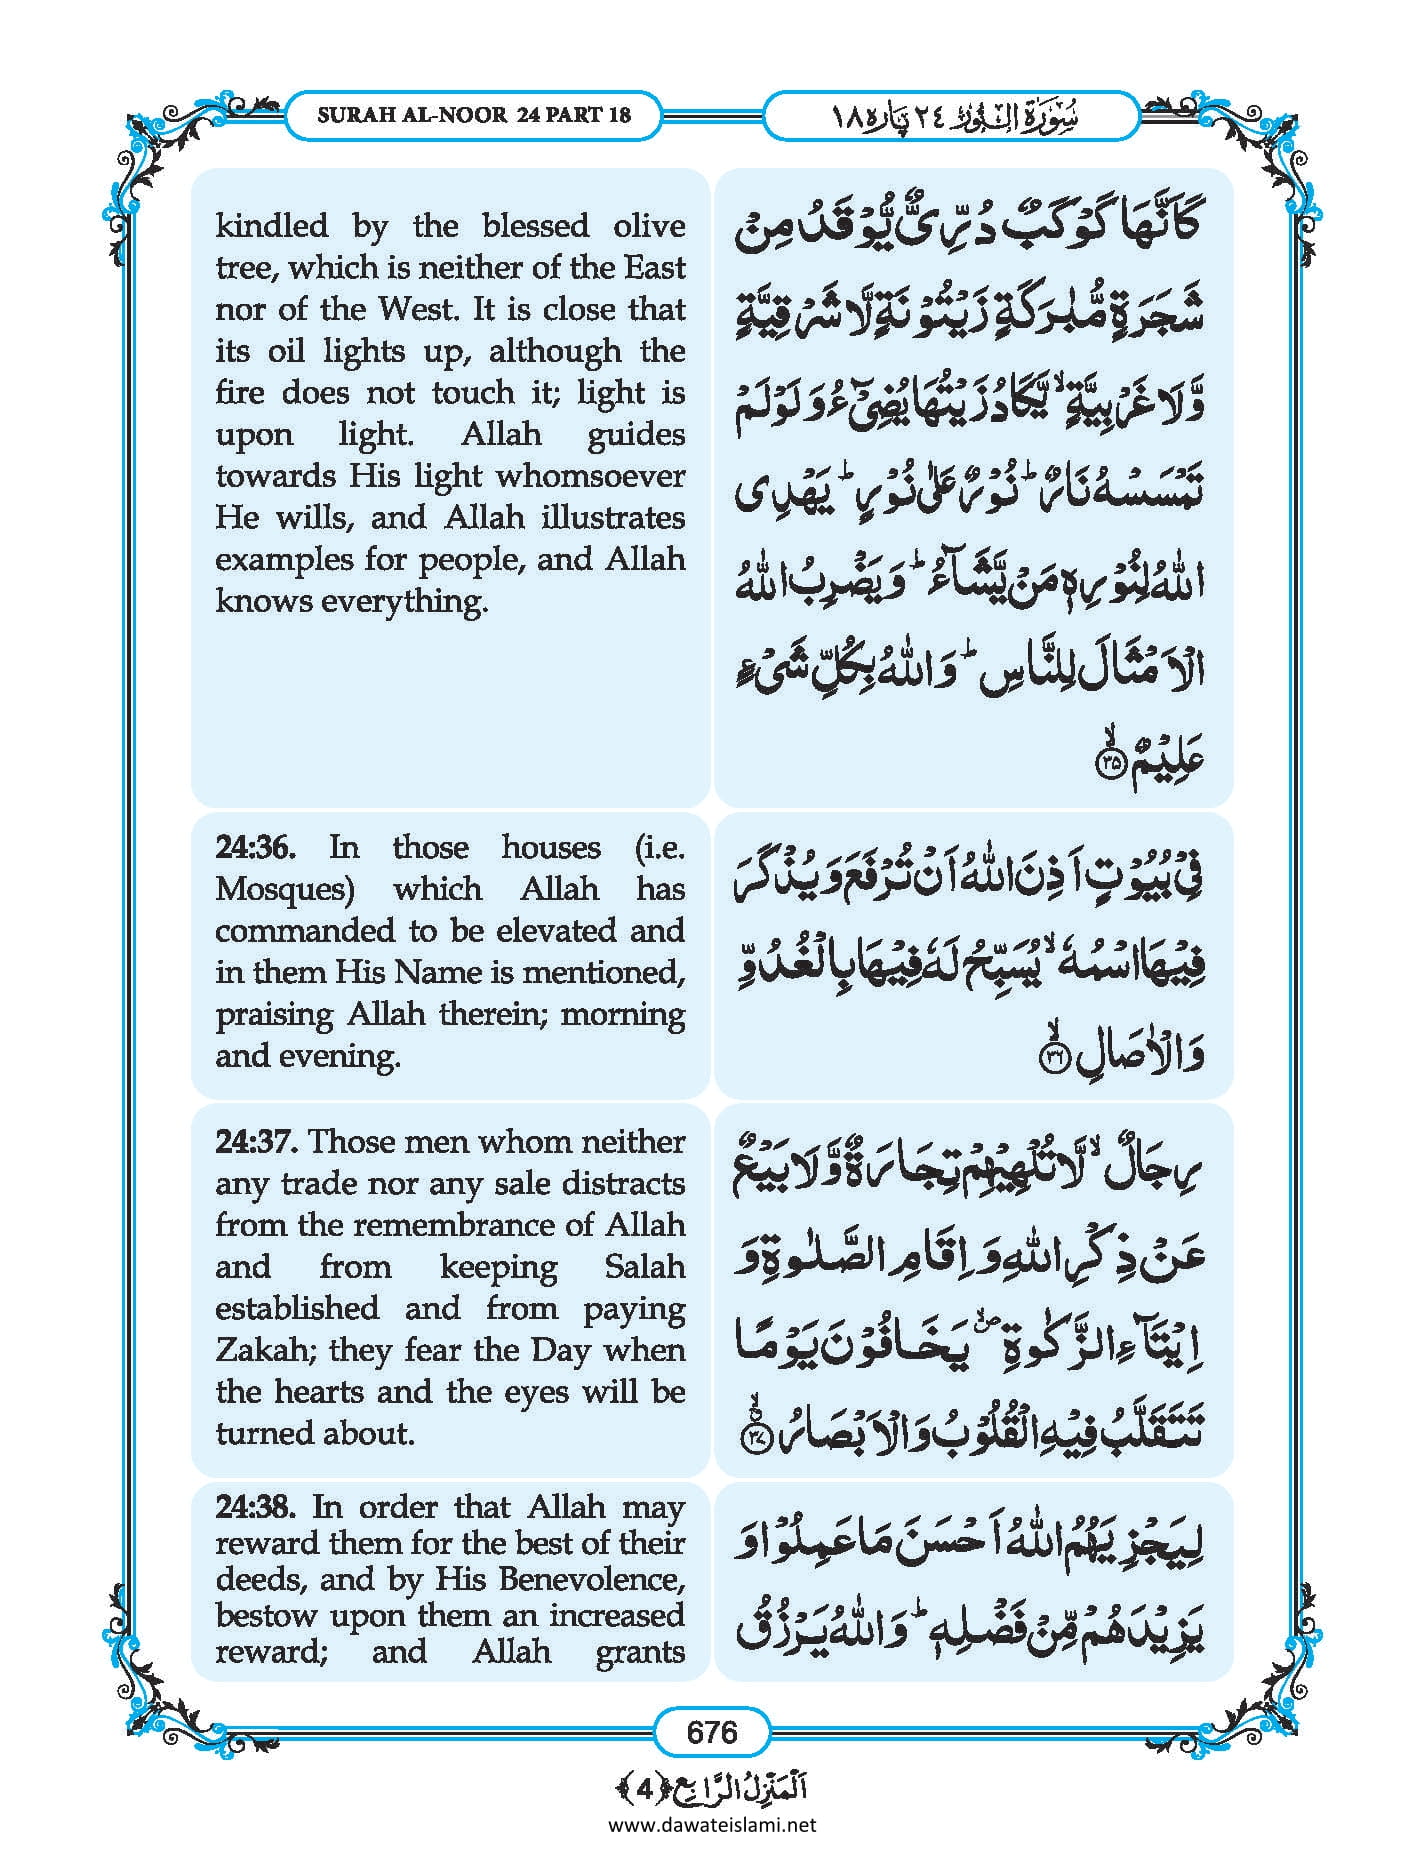 SURAH AL-NOOR 24 PART 18
سُوْرَةُ النُّوْر ٢٤ پاره ١٨
kindled by the blessed olive
tree, which is neither of the East
nor of the West. It is close that
its oil lights up, although the
fire does not touch it; light is
upon light. Allah guides
towards His light whomsoever
He wills, and Allah illustrates
examples for people, and Allah
knows everything.
كَاَنَّهَا كَوْكَبٌ دُرِّیٌّ یُّوْقَدُ مِنْ
شَجَرَةٍ مُّبٰرَكَةٍ زَیْتُوْنَةٍ لَّا شَرْقِیَّةٍ
وَّ لَا غَرْبِیَّةٍۙ یَّكَادُ زَیْتُهَا یُضِیْٓءُ وَ لَوْ لَمْ
تَمْسَسْهُ نَارٌؕ نُوْرٌ عَلٰى نُوْرٍؕ یَهْدِی
اللّٰهُ لِنُوْرِهٖ مَنْ یَّشَآءُؕ وَ یَضْرِبُ اللّٰهُ
الْاَمْثَالَ لِلنَّاسِؕ وَ اللّٰهُ بِكُلِّ شَیْءٍ
عَلِیْمٌۙ ﴿۳۵﴾
24:36. In those houses (i.e.
Mosques) which Allah has
commanded to be elevated and
in them His Name is mentioned,
praising Allah therein; morning
and evening.
فِیْ بُیُوْتٍ اَذِنَ اللّٰهُ اَنْ تُرْفَعَ وَ یُذْكَرَ
فِیْهَا اسْمُهٗۙ یُسَبِّحُ لَهٗ فِیْهَا بِالْغُدُوِّ
وَ الْاٰصَالِۙ ﴿۳۶﴾
24:37. Those men whom neither
any trade nor any sale distracts
from the remembrance of Allah
and from keeping Salah
established and from paying
Zakah; they fear the Day when
the hearts and the eyes will be
turned about.
رِجَالٌۙ لَّا تُلْهِیْهِمْ تِجَارَةٌ وَّ لَا بَیْعٌ
عَنْ ذِكْرِ اللّٰهِ وَ اِقَامِ الصَّلٰوةِ وَ
اِیْتَآءِ الزَّكٰوةِۙ یَخَافُوْنَ یَوْمًا
تَتَقَلَّبُ فِیْهِ الْقُلُوْبُ وَ الْاَبْصَارُۗۙ ﴿۳۷﴾
24:38. In order that Allah may
reward them for the best of their
deeds, and by His Benevolence,
bestow upon them an increased
reward; and Allah grants
لِیَجْزِیَهُمُ اللّٰهُ اَحْسَنَ مَا عَمِلُوْا وَ
یَزِیْدَهُمْ مِّنْ فَضْلِهٖؕ وَ اللّٰهُ یَرْزُقُ
676
اَلْمَنْزِلُ الرَّابِع ﴿4﴾
www.dawateislami.net